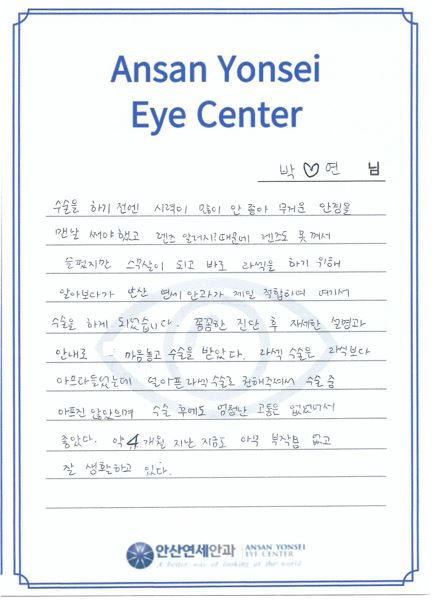 Ansan Yonsei
Eye Center
박♡연 님
수술을 하기 전엔 시력이 많이 안 좋아 무거운 안경을
맨날 써야했고 렌즈 알러지때문에 렌즈도 못껴서
슬펐지만 스무살이 되고 바로 라섹을 하기 위해
알아보다가 안산 연세안과가 제일 적합하여 여기서
수술을 하게 되었습니다. 꼼꼼한 진단 후 자세한 설명과
안내로 마음놓고 수술을 받았다. 라섹 수술은 라식보다
아프다들었는데 덜아프라섹수술로 권해주셔서 수술 중
아프진 않았으며 수술 후에도 엄청난 고통은 없었어서
좋았다. 약 4개월 지난 지금도 아무 부작용 없고
잘 생활하고 있다.
안산연세안과 ANSAN YONSEI
EYE CENTER
A better way of looking at the world